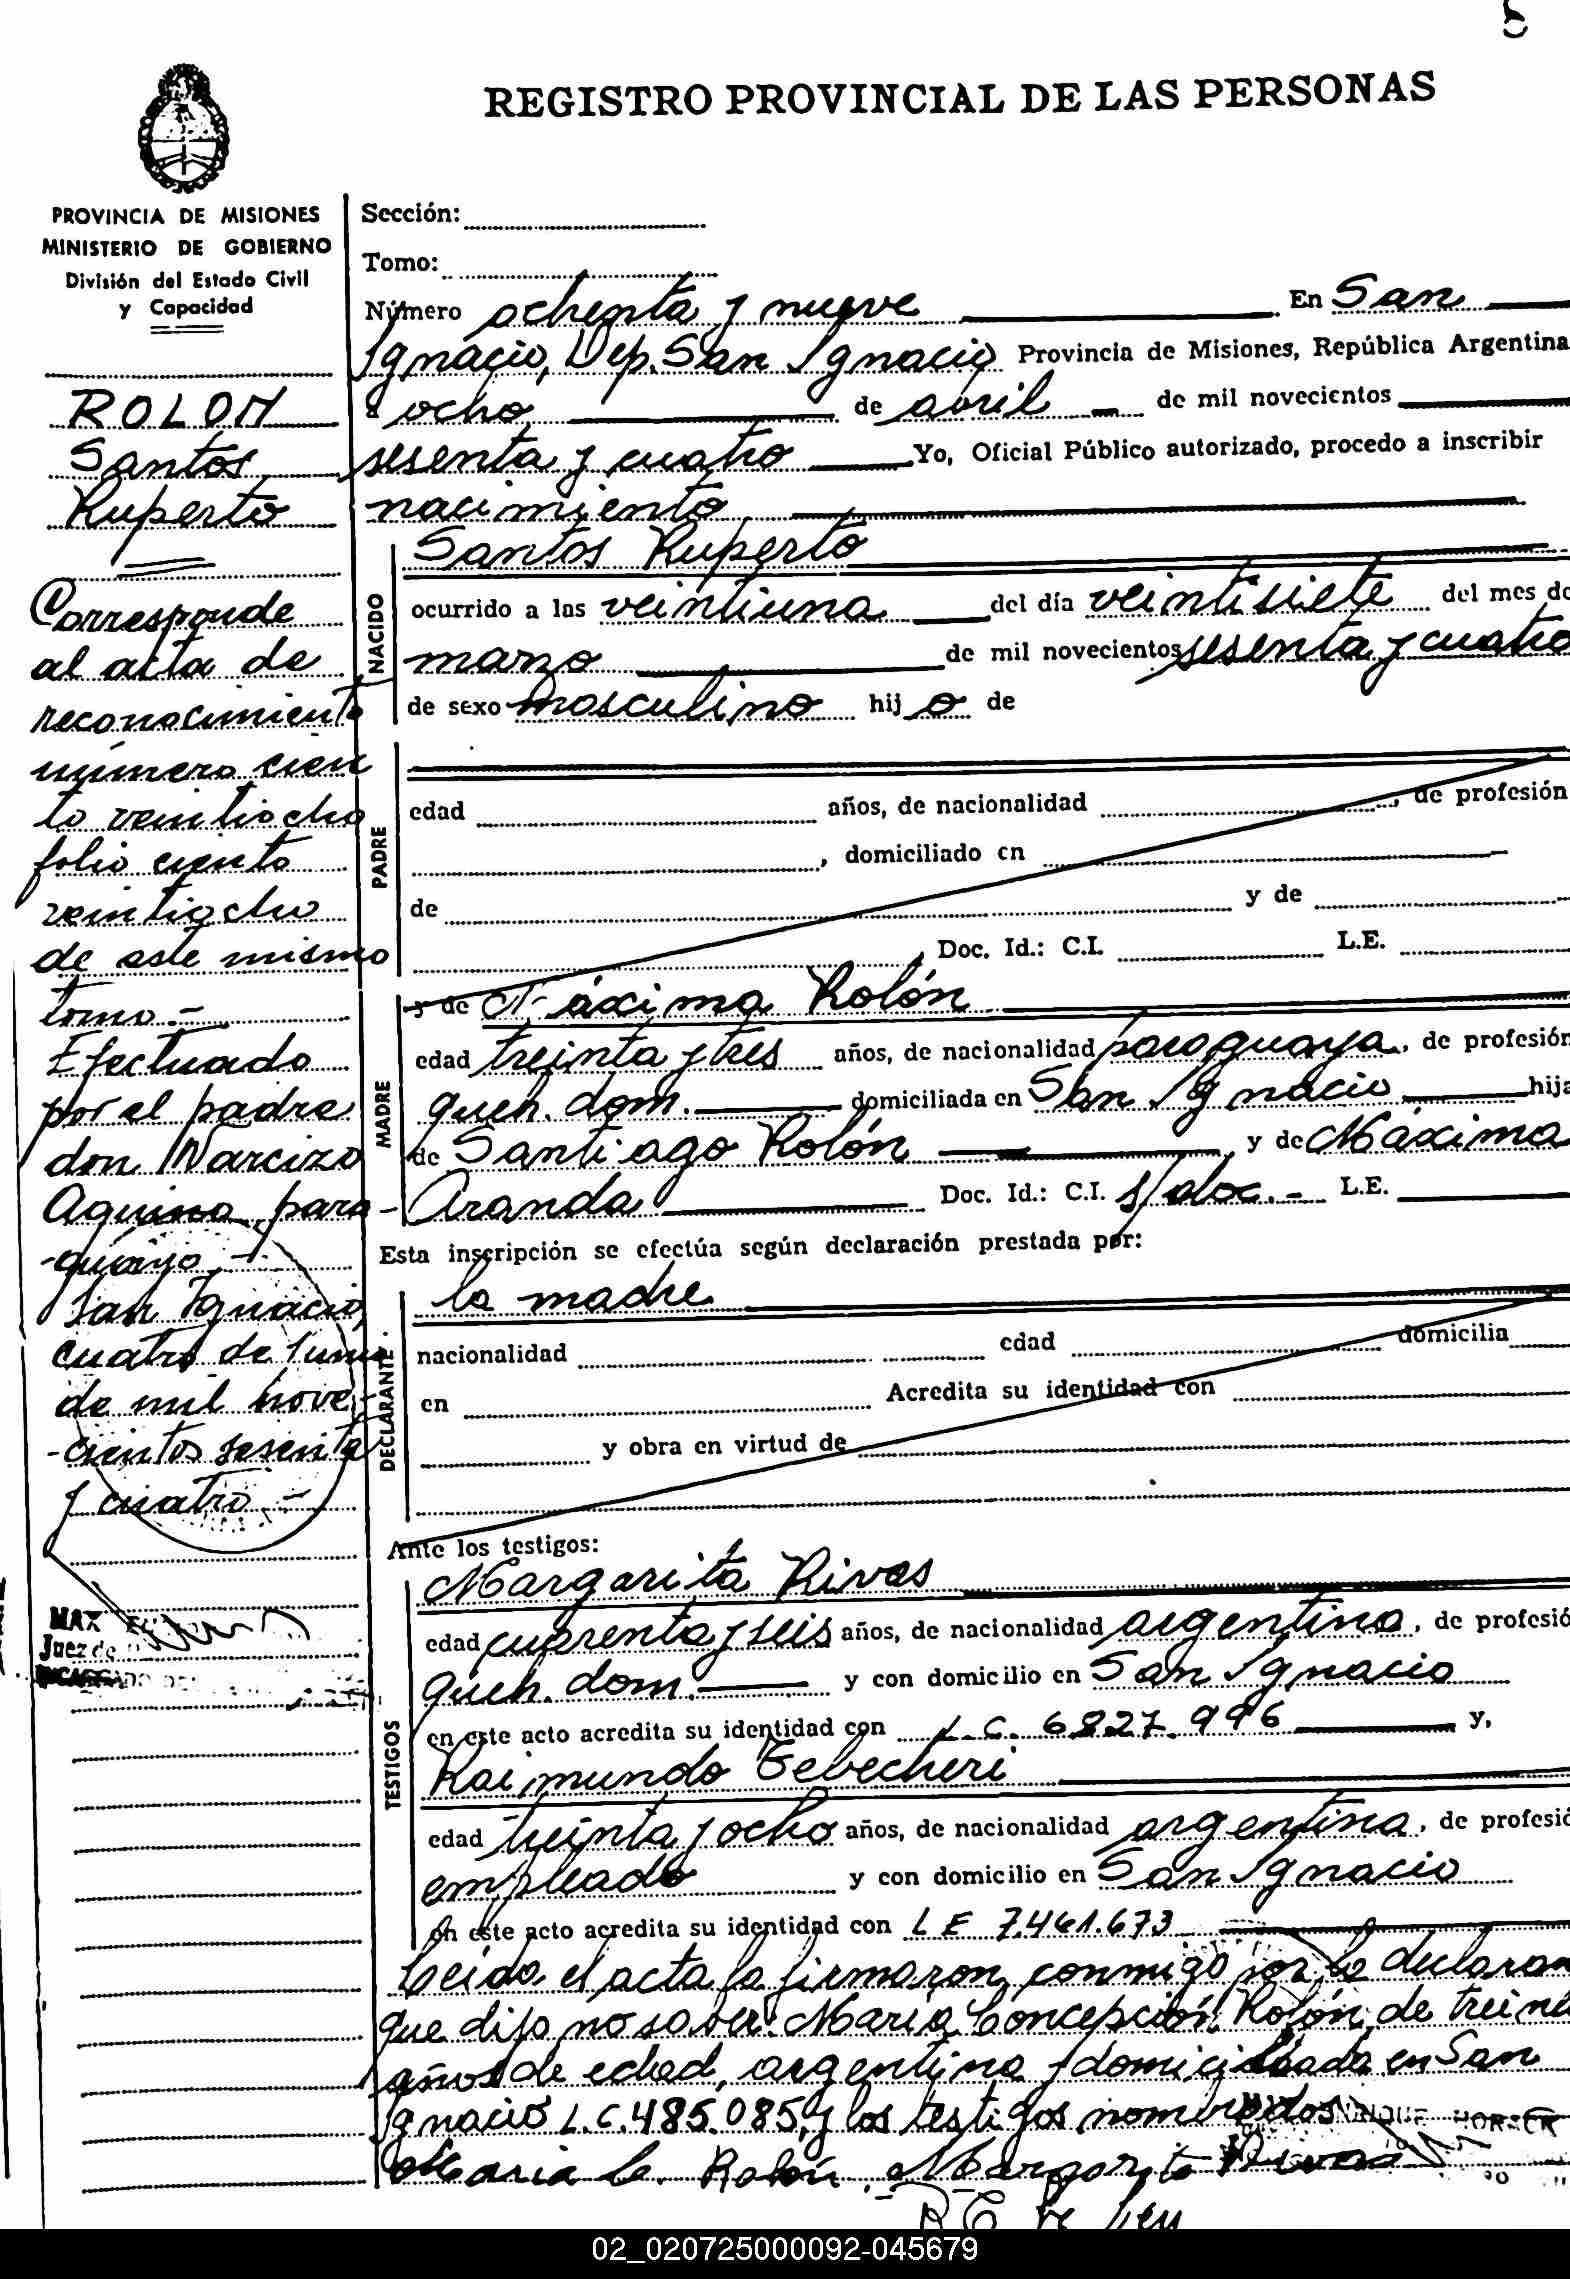 REGISTRO PROVINCIAL DE LAS PERSONAS
PROVINCIA DE MISIONES
MINISTERIO DE GOBIERNO
División del Estado Civil
y Capacidad
ROLON
Santos
Ruperto
Corresponde
al acta de
reconocimiento
número cien
to veintiocho
folio ciento
veintiocho
de este mismo
tomo.-
Efectuado
por el padre
don Narcizo
Aquino, para-
-guayo.-
San Ignacio,
cuatro de Junio
de mil nove-
-cientos sesenta
y cuatro.-
MAX
Juez de
ENCARGADO DEL
Sección:
Tomo:
Número ochenta y nueve En San
Ignacio, Dep. San Ignacio Provincia de Misiones, República Argentina
a ocho de abril de mil novecientos
sesenta y cuatro Yo, Oficial Público autorizado, procedo a inscribir
nacimiento
NACIDO
Santos Ruperto
ocurrido a las veintiuna del día veintisiete del mes de
marzo de mil novecientos sesenta y cuatro
de sexo masculino hij o de
PADRE
edad años, de nacionalidad , de profesión
, domiciliado en
de y de
, Doc. Id.: C.I. L.E.
MADRE
y de Máxima Rolón
edad treinta y tres años, de nacionalidad paraguaya, de profesión
queh. dom. domiciliada en San Ignacio hija
de Santiago Rolón y de Máxima
Aranda Doc. Id.: C.I. s/doc.- L.E.
Esta inscripción se efectúa según declaración prestada por:
DECLARANTE
la madre
nacionalidad edad domicilia
en Acredita su identidad con
y obra en virtud de
Ante los testigos:
TESTIGOS
Margarita Rivas
edad cuarenta y seis años, de nacionalidad argentina, de profesió
queh. dom. y con domicilio en San Ignacio
en este acto acredita su identidad con L.C. 6.827.996 y,
Raimundo Tebecheri
edad treinta y ocho años, de nacionalidad argentina, de profesió
empleado y con domicilio en San Ignacio
en este acto acredita su identidad con L E 7.461.673
Leída el acta la firmaron conmigo por la declaran
que dijo no saber: María Concepción Rolón, de trein
años de edad, argentina y domiciliada en San
Ignacio L.C. 485.085, y los testigos nombrados
ENRIQUE HORNER
Maria C. Rolón Margarita Rivas
02_020725000092-045679